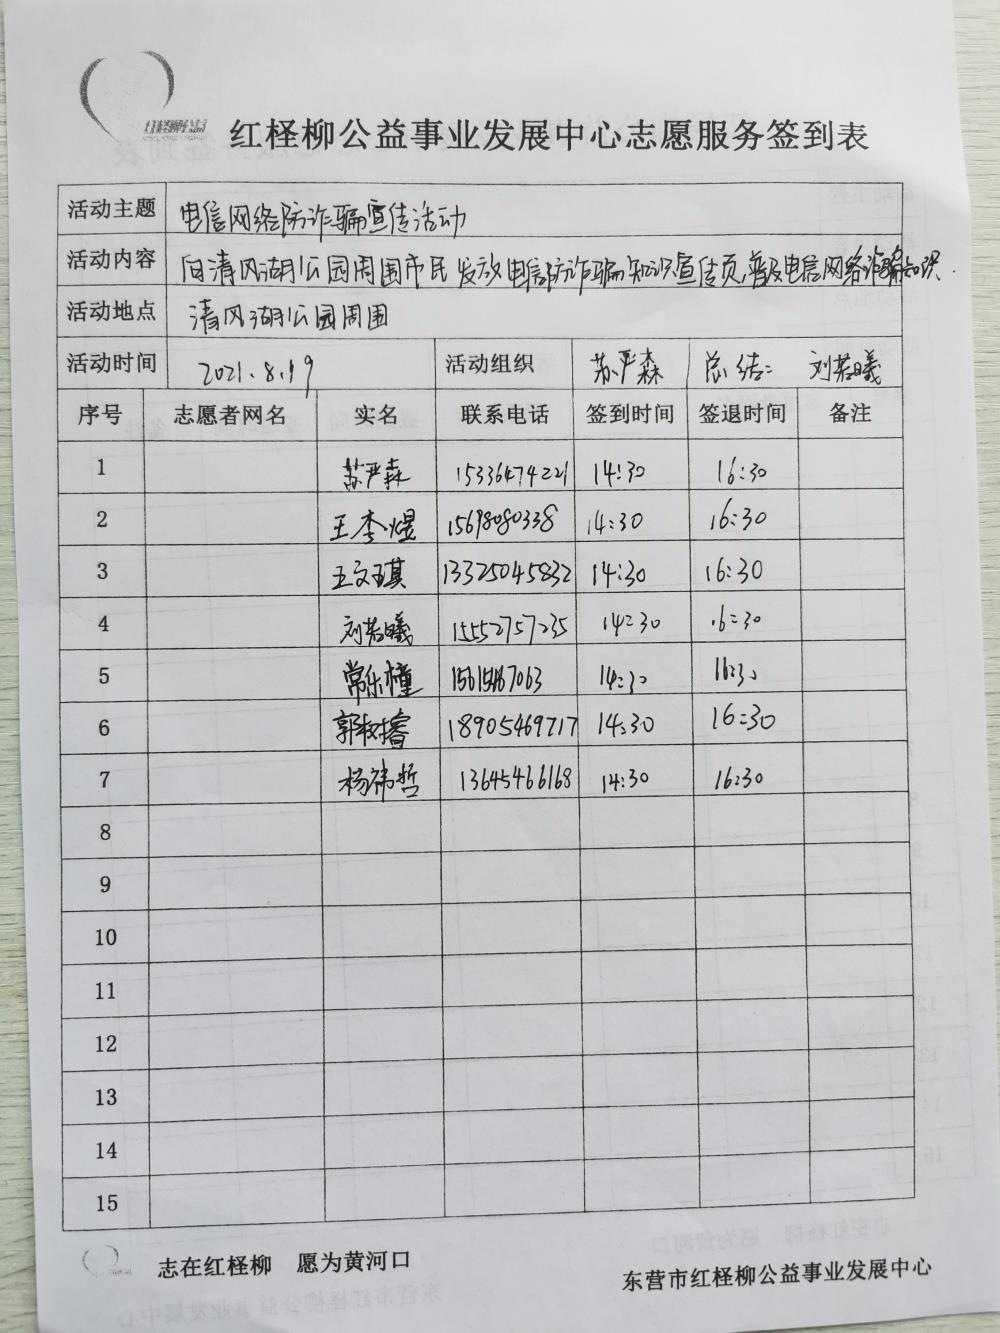 红柽柳公益
红柽柳公益事业发展中心志愿服务签到表
活动主题 电信网络防诈骗宣传活动
活动内容 向清风湖公园周围市民发放电信防诈骗知识宣传页,普及电信网络诈骗知识.
活动地点 清风湖公园周围
活动时间 2021.8.19 活动组织 苏严森 / 总结: 刘若曦
序号 志愿者网名 实名 联系电话 签到时间 签退时间 备注
1 苏严森 15336474221 14:30 16:30
2 王李煜 15698080338 14:30 16:30
3 王文琪 13325045832 14:30 16:30
4 刘若曦 15552757235 14:30 16:30
5 常乐橦 14:30 16:30
6 郭树睿 18905469717 14:30 16:30
7 杨祎哲 13645466168 14:30 16:30
8
9
10
11
12
13
14
15
志在红柽柳 愿为黄河口
东营市红柽柳公益事业发展中心